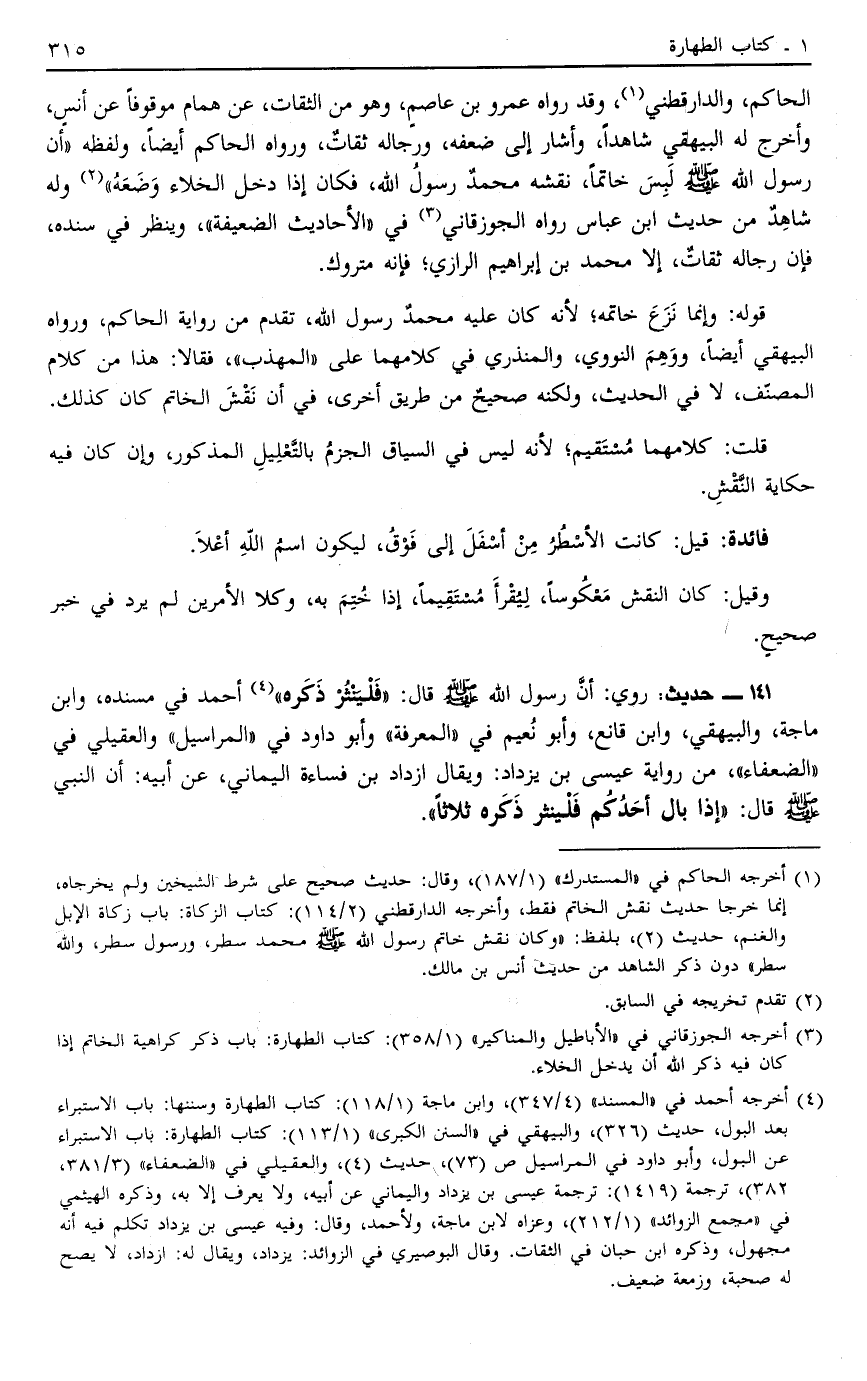 ١ ـ كتاب الطهارة ٣١٥
الحاكم، والدارقطني(١)، وقد رواه عمرو بن عاصمٍ، وهو من الثقات، عن همام موقوفاً عن أنسٍ،
وأخرج له البيهقي شاهداً، وأشار إلى ضعفه، ورجاله ثقاتٌ، ورواه الحاكم أيضاً، ولفظه «أن
رسول الله ﷺ لَبِسَ خاتماً، نقشه محمدٌ رسولُ الله، فكان إذا دخل الخلاء وَضَعَهُ»(٢) وله
شاهِدٌ من حديث ابن عباس رواه الجوزقاني(٣) في «الأحاديث الضعيفة»، وينظر في سنده،
فإن رجاله ثقاتٌ، إلا محمد بن إبراهيم الرازي؛ فإنه متروك.
قوله: وإنما نَزَعَ خاتمه؛ لأنه كان عليه محمدٌ رسول الله، تقدم من رواية الحاكم، ورواه
البيهقي أيضاً، ووَهِمَ النووي، والمنذري في كلامهما على «المهذب»، فقالا: هذا من كلام
المصنّف، لا في الحديث، ولكنه صحيحٌ من طريق أخرى، في أن نَقْشَ الخاتم كان كذلك.
قلت: كلامهما مُسْتَقيم؛ لأنه ليس في السياق الجزمُ بالتَّعْلِيلِ المذكور، وإن كان فيه
حكاية النَّقْشِ.
فائدة: قيل: كانت الأسْطُرُ مِنْ أسْفَلَ إلى فَوْقُ، ليكون اسمُ اللّهِ أعْلاَ.
وقيل: كان النقش مَعْكُوساً، لِيُقْرأَ مُسْتَقِيماً، إذا خُتِمَ به، وكلا الأمرين لم يرد في خبر
صحيحٍ.
١٤١ ـ حديث: روي: أنَّ رسول الله ﷺ قال: «فَلْيَنْثُرْ ذَكَره»(٤) أحمد في مسنده، وابن
ماجة، والبيهقي، وابن قانع، وأبو نُعيم في «المعرفة» وأبو داود في «المراسيل» والعقيلي في
«الضعفاء»، من رواية عيسى بن يزداد: ويقال ازداد بن فساءة اليماني، عن أبيه: أن النبي
ﷺ قال: «إذا بال أحَدُكُم فَلْينثر ذَكَره ثلاثاً».
(١) أخرجه الحاكم في «المستدرك» (١/١٨٧)، وقال: حديث صحيح على شرط الشيخين ولم يخرجاه،
إنما خرجا حديث نقش الخاتم فقط، وأخرجه الدارقطني (٢/١١٤): كتاب الزكاة: باب زكاة الإبل
والغنم، حديث (٢)، بلفظ: «وكان نقش خاتم رسول الله ﷺ محمد سطر، ورسول سطر، والله
سطر» دون ذكر الشاهد من حديث أنس بن مالك.
(٢) تقدم تخريجه في السابق.
(٣) أخرجه الجوزقاني في «الأباطيل والمناكير» (١/٣٥٨): كتاب الطهارة: باب ذكر كراهية الخاتم إذا
كان فيه ذكر الله أن يدخل الخلاء.
(٤) أخرجه أحمد في «المسند» (٤/٣٤٧)، وابن ماجة (١/١١٨): كتاب الطهارة وسننها: باب الاستبراء
بعد البول، حديث (٣٢٦)، والبيهقي في «السنن الكبرى» (١/١١٣): كتاب الطهارة: باب الاستبراء
عن البول، وأبو داود في المراسيل ص (٧٣)، حديث (٤)، والعقيلي في «الضعفاء» (٣/٣٨١،
٣٨٢)، ترجمة (١٤١٩): ترجمة عيسى بن يزداد واليماني عن أبيه، ولا يعرف إلا به، وذكره الهيثمي
في «مجمع الزوائد» (١/٢١٢)، وعزاه لابن ماجة، ولأحمد، وقال: وفيه عيسى بن يزداد تكلم فيه أنه
مجهول، وذكره ابن حبان في الثقات. وقال البوصيري في الزوائد: يزداد، ويقال له: ازداد، لا يصح
له صحبة، وزمعة ضعيف.